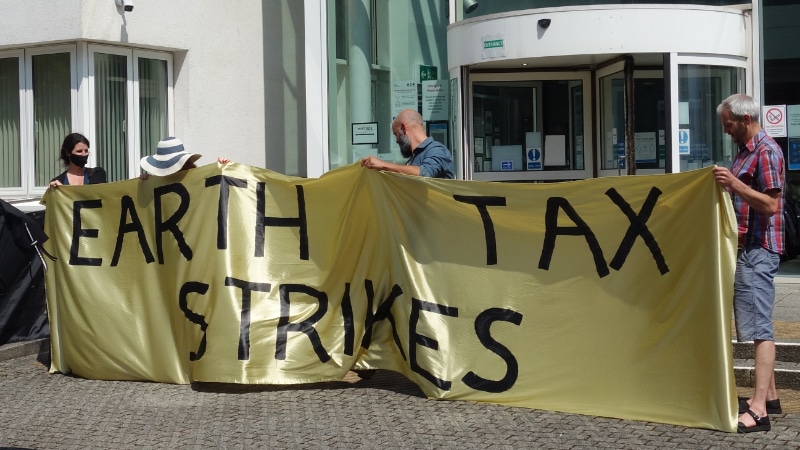 EARTH TAX
STRIKES